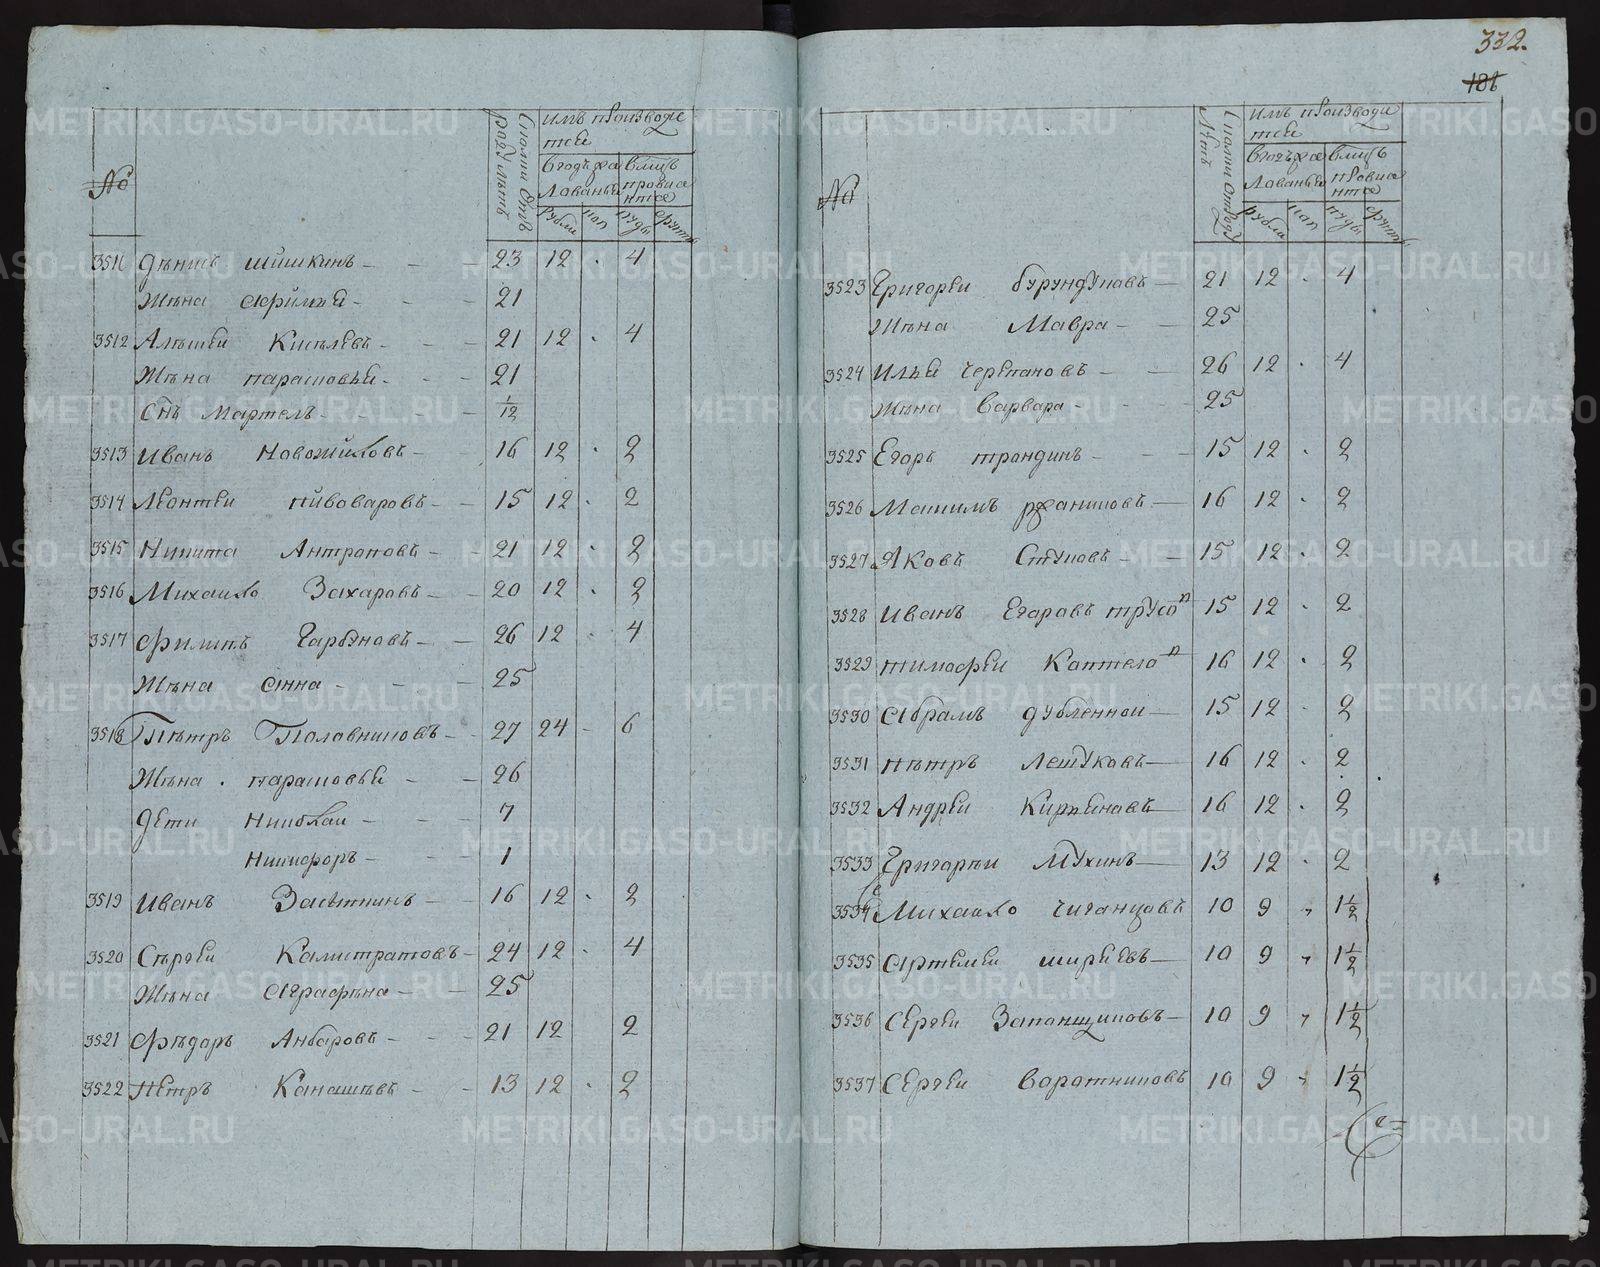 332.
186
№
имъ производи
тса
вгодъ жа
лованья
вмцъ
провиа
нта
рубли
коп
пуды
фунты
3511 Дѣнисъ шишкинъ — 23 12 . 4
Жѣна афимья — 21
3512 Алѣксѣй Кисѣлевъ — 21 12 . 4
Жѣна парасковья — 21
Снъ Мартелъ — 1/12
3513 Иванъ Новожиловъ — 16 12 . 2
3514 Леонтеи пивоваровъ — 15 12 . 2
3515 Никита Антроповъ — 21 12 . 2
3516 Михаило Захаровъ — 20 12 . 2
3517 Филипъ Гарбуновъ — 26 12 . 4
Жѣна анна — 25
3518 Пѣтръ Половниковъ — 27 24 - 6
Жѣна . парасковья — 26
дети Николаи — 7
Никифоръ — 1
3519 Иванъ Засыпкинъ — 16 12 . 2
3520 Сѣргѣи Калистратовъ — 24 12 . 4
Жѣна Аграфѣна — 25
3521 Фѣдоръ Анбаровъ — 21 12 2
3522 Петръ Канашѣвъ — 13 12 . 2
№
имъ производи
тса
вгодъ жа
лованья
вмцъ
провиа
нта
рубли
коп
пуды
фунты
3523 Григореи бурундуковъ — 21 12 . 4
Жѣна Мавра — 25
3524 Илья Черепановъ — 26 12 . 4
Жѣна Варвара — 25
3525 Егоръ трандинъ — 15 12 . 2
3526 Максимъ — 16 12 . 2
3527 Яковъ Стуковъ — 15 12 . 2
3528 Иванъ Егаровъ трусо 15 12 . 2
3529 тимофеи Коптело 16 12 . 2
3530 Абрамъ дубленнои — 15 12 . 2
3531 пѣтръ Лешуковъ — 16 12 . 2
3532 Андреи Кирпеновъ — 16 12 . 2
3533 Григореи Мухинъ — 13 12 . 2
3534 Михаило Чиганцовъ 10 9 „ 1 1/2
3535 Артемеи ширяевъ — 10 9 „ 1 1/2
3536 Сергеи Запонщиковъ — 10 9 „ 1 1/2
3537 Сергеи Воротниковъ 10 9 „ 1 1/2
METRIKI.GASO-URAL.RU